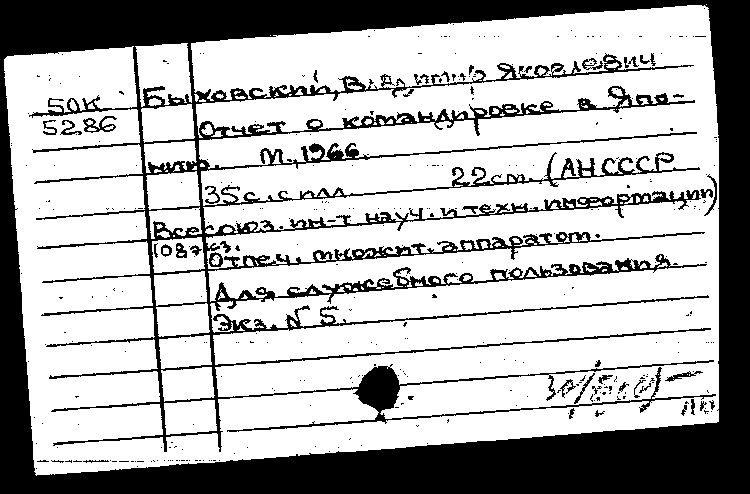 50К
52.86
Быховский, Владимир Яковлевич
Отчет о командировке в Япо-
нию. М., 1966.
35с. с илл. 22см. (АН СССР.
Всесоюз. ин-т науч. и техн. информации)
Отпеч. множит. аппаратом.
Для служебного пользования.
Экз. N 5.